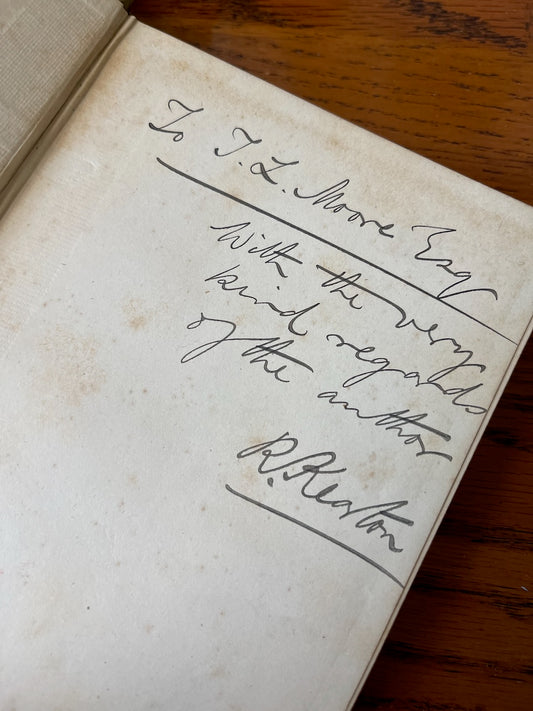 To T. L. Moore Esq
With the very
kind regards
of the author
R. Kearton